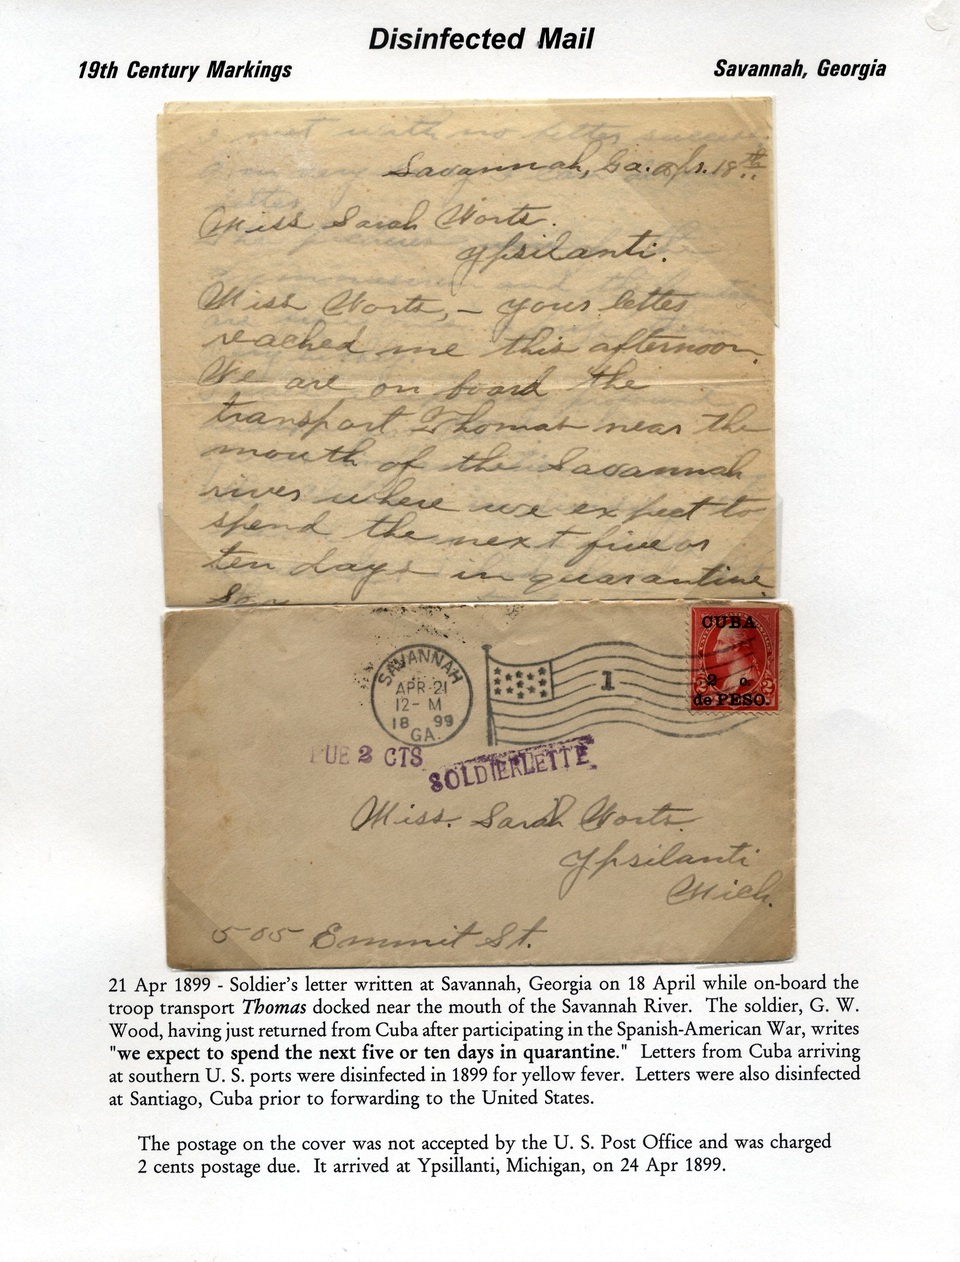 Disinfected Mail
19th Century Markings
Savannah, Georgia
i met with no better success
Savannah, Ga. Apr. 18th
Miss Sarah Worts.
Ypsilanti.
Miss Worts, – Your letter
reached me this afternoon.
We are on board the
transport Thomas near the
mouth of the Savannah
river where we expect to
spend the next five or
ten days in quarantine
SAVANNAH
APR 21
12- M
18 99
GA.
1
CUBA
2 c.
de PESO.
2 2
DUE 2 CTS
SOLDIERLETTE
Miss. Sarah Worts.
Ypsilanti
Mich.
505 Emmit St.
21 Apr 1899 - Soldier's letter written at Savannah, Georgia on 18 April while on-board the
troop transport Thomas docked near the mouth of the Savannah River. The soldier, G. W.
Wood, having just returned from Cuba after participating in the Spanish-American War, writes
"we expect to spend the next five or ten days in quarantine." Letters from Cuba arriving
at southern U. S. ports were disinfected in 1899 for yellow fever. Letters were also disinfected
at Santiago, Cuba prior to forwarding to the United States.
The postage on the cover was not accepted by the U. S. Post Office and was charged
2 cents postage due. It arrived at Ypsillanti, Michigan, on 24 Apr 1899.